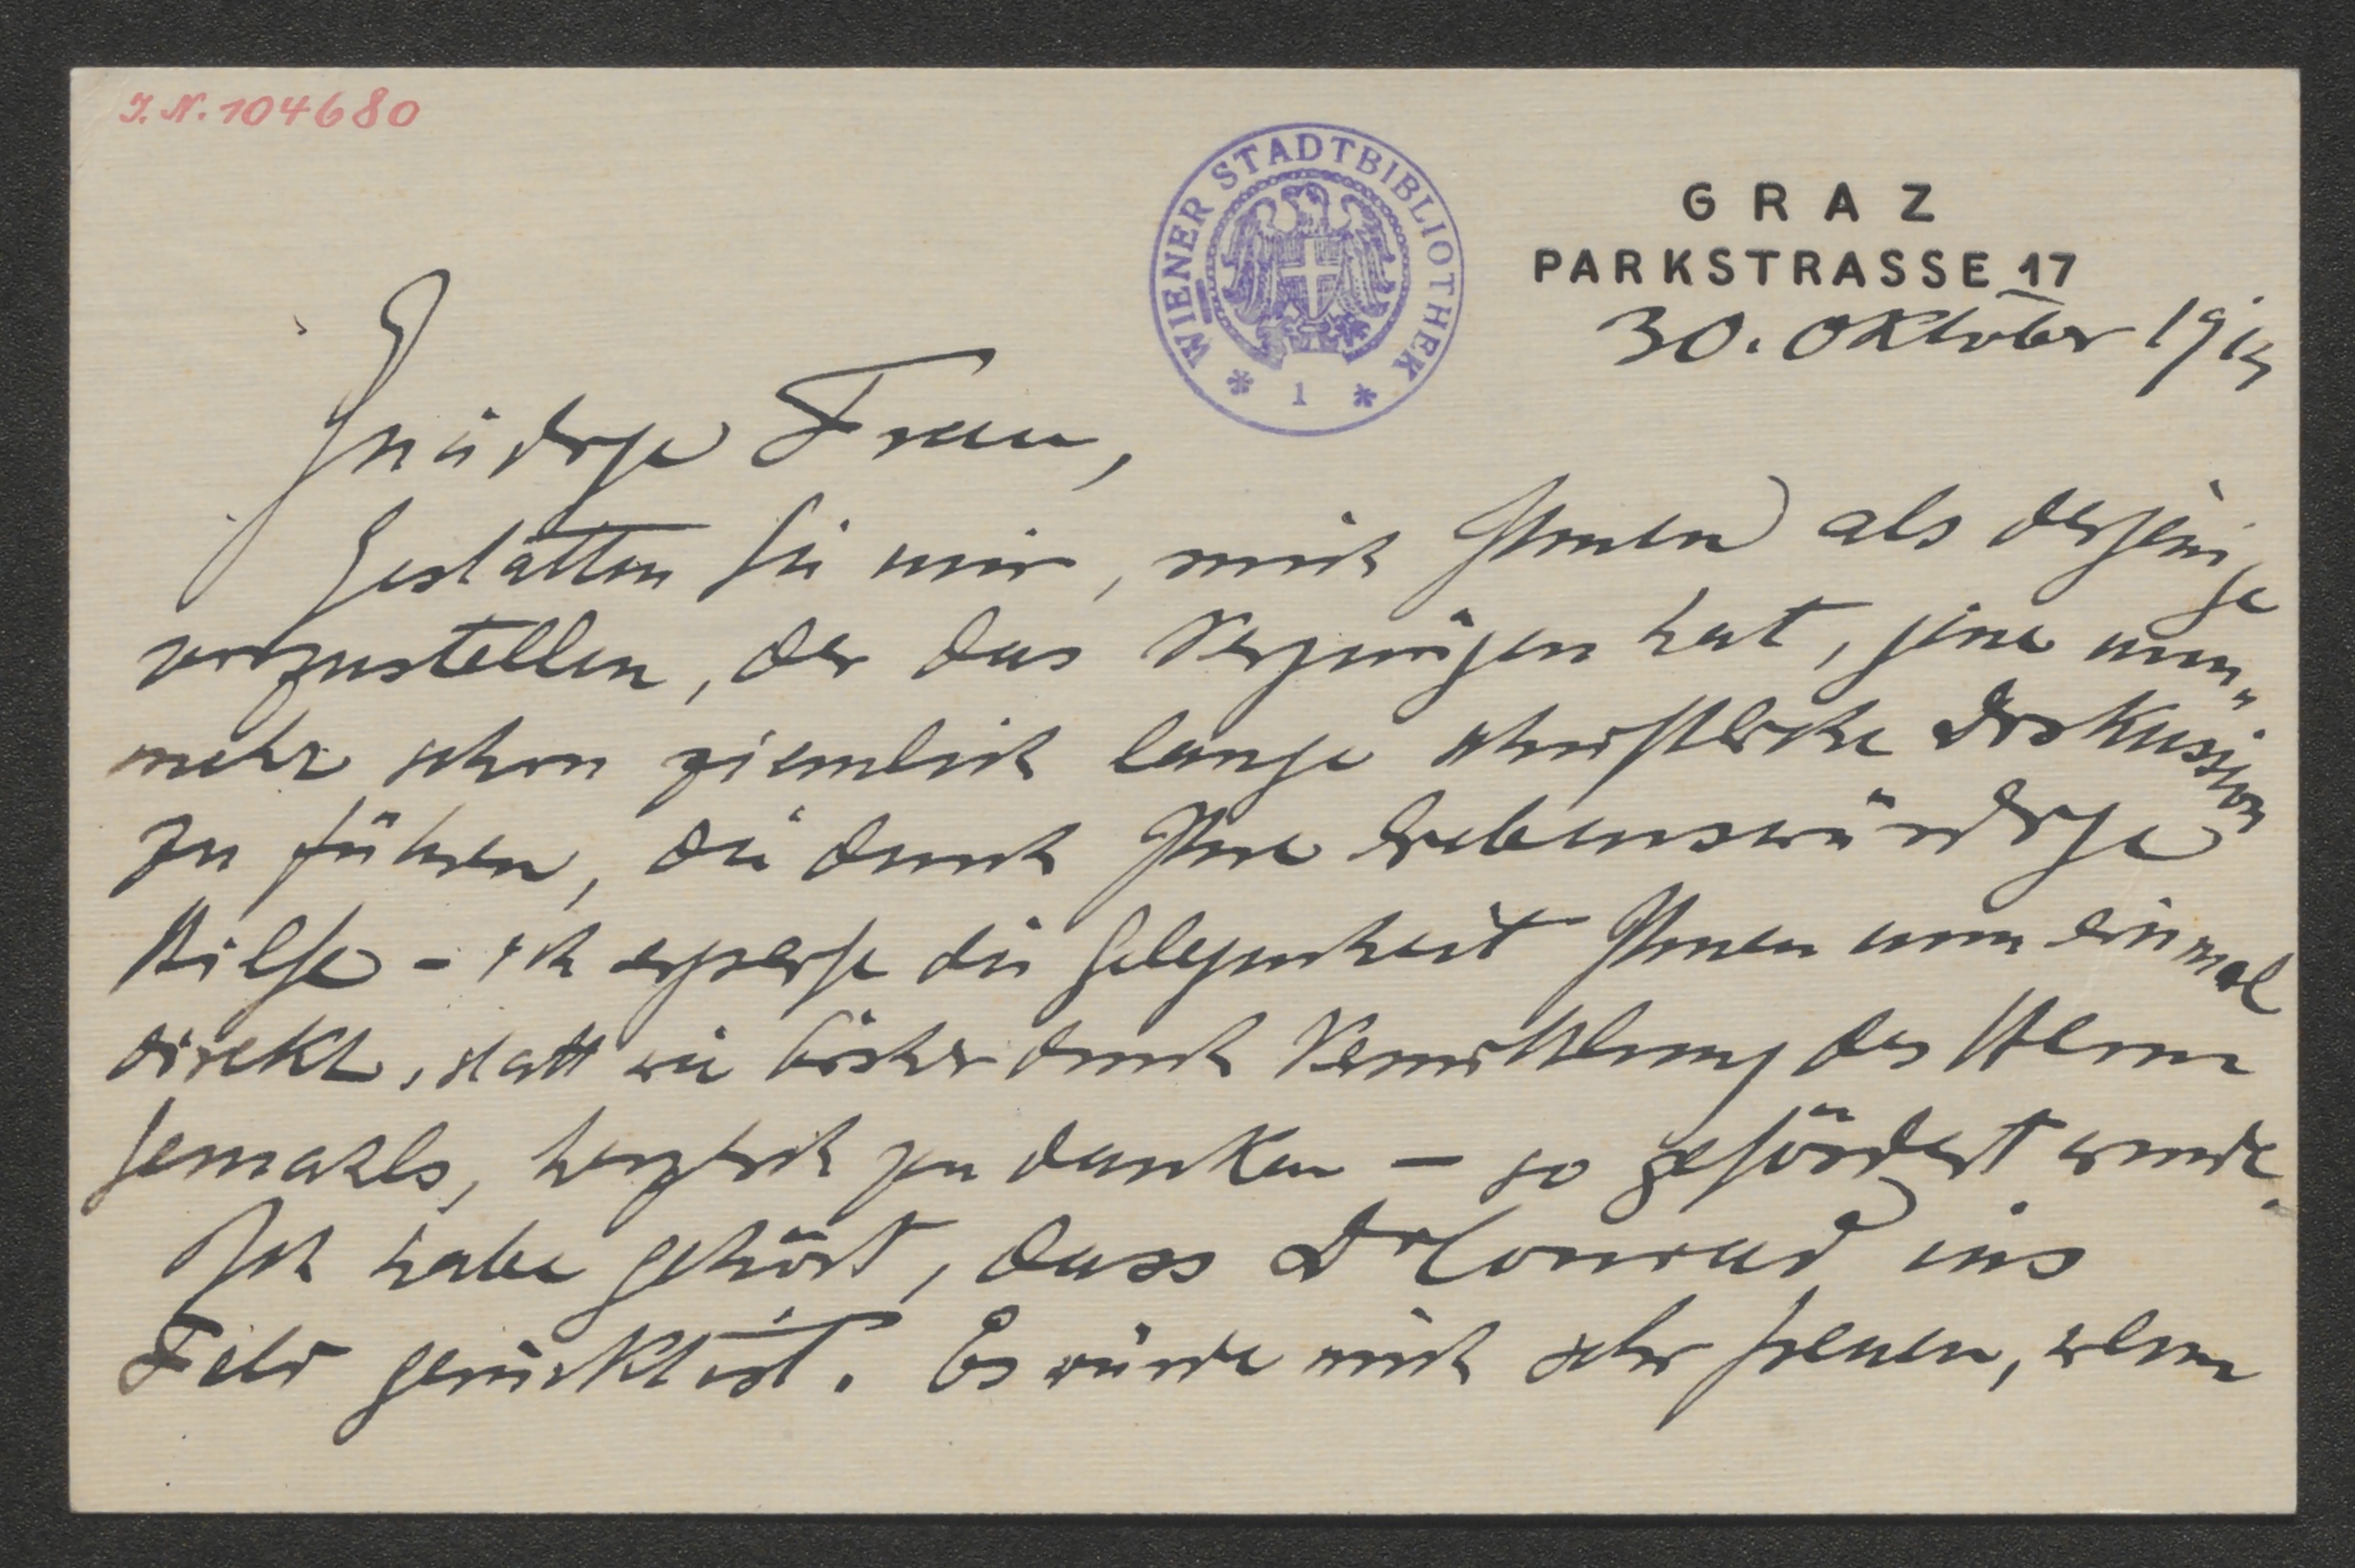 I.N. 104680
WIENER STADTBIBLIOTHEK
* 1 *
GRAZ
PARKSTRASSE 17
30. Oktober 1915
Gnädige Frau,
Gestatten Sie mir, mich Ihnen als derjenige
vorzustellen, der das Vergnügen hat, jene nun-
mehr schon ziemlich lange schriftliche Diskussion
zu führen, die durch Ihre liebenswürdige
Hilfe - ich ergreife die Gelegenheit Ihnen nun einmal
direkt, statt wie bisher durch Vermittlung des Herrn
Gemahls, herzlich zu danken - so gefördert wurde.
Ich habe gehört, dass Dr Conrad ins
Feld gerückt ist. Es würde mich sehr freuen, wenn